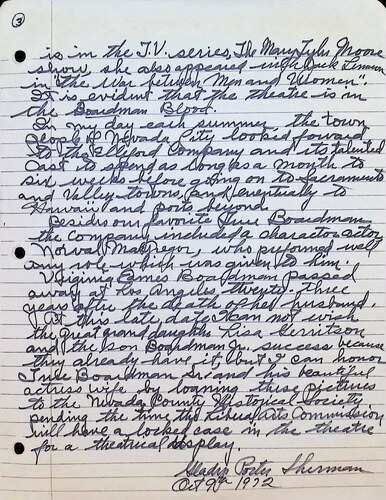 3
is in the T.V. series, The Mary Tyler Moore
show, she also appeared with Jack Lemmon
in "the War between Men and Women".
It is evident that the theatre is in
the Boardman Blood.
In my day each summer the town
people of Nevada City looked forward
to the Elliford Company and its talented
cast to spend as long as a month to
six weeks before going on to Sacramento
and Valley towns, and eventually to
Hawaii and ports beyond.
Besides our favorite True Boardman
the Company included a character actor
Norval MacGregor, who preformed well
any role which was given to him.
Virginia Eames Boardman passed
away in Los Angeles twenty three
years after the death of her husband.
At this late date I can not wish
the great grand daughter Lisa Gerritson
and the son Boardman Jr. success because
they already have it, but I can honor
True Boardman Sr. and his beautiful
actress wife by loaning these pictures
to the Nevada County Historical Society
pending the time the Liberal Arts Commission
will have a locked case in the theatre
for a theatrical display.
Gladys Porter Sherman
Oct 9th 1972